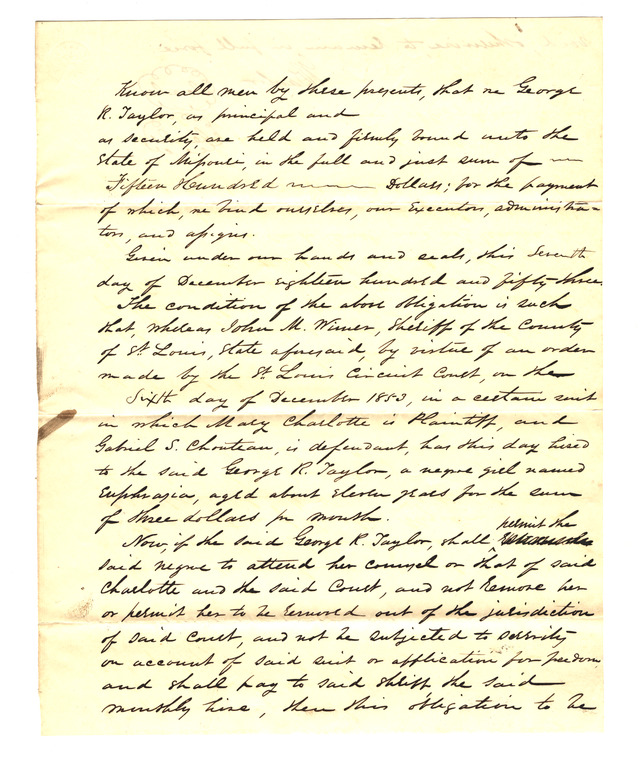 Know all men by these presents, that we George
R. Taylor, as principal and
as security, are held and firmly bound unto the
State of Missouri, in the full and just sum of
Fifteen Hundred Dollars; for the payment
of which, we bind ourselves, our Executors, administra-
tors, and assigns.
Given under our hands and seals, this Seventh
day of December Eighteen hundred and fifty three.
The condition of the above obligation is such
that, whereas John M. Wimer, Sheriff of the County
of St. Louis, State aforesaid, by virtue of an order
made by the St. Louis Circuit Court, on the
Sixth day of December 1853, in a certain suit
in which Mary Charlotte is Plaintiff, and
Gabriel S. Chouteau, is defendant, has this day hired
to the said George R. Taylor, a negro girl named
Euphrasia, aged about Eleven years for the sum
of three dollars pr month.
Now, if the said George R. Taylor, shall permit the
said negro to attend her counsel or that of said
Charlotte and the said Court, and not Remove her
or permit her to be Removed out of the jurisdiction
of said Court, and not be subjected to severity
on account of said suit or application for freedom
and shall pay to said Sheriff, the said
monthly hire, then this obligation to be